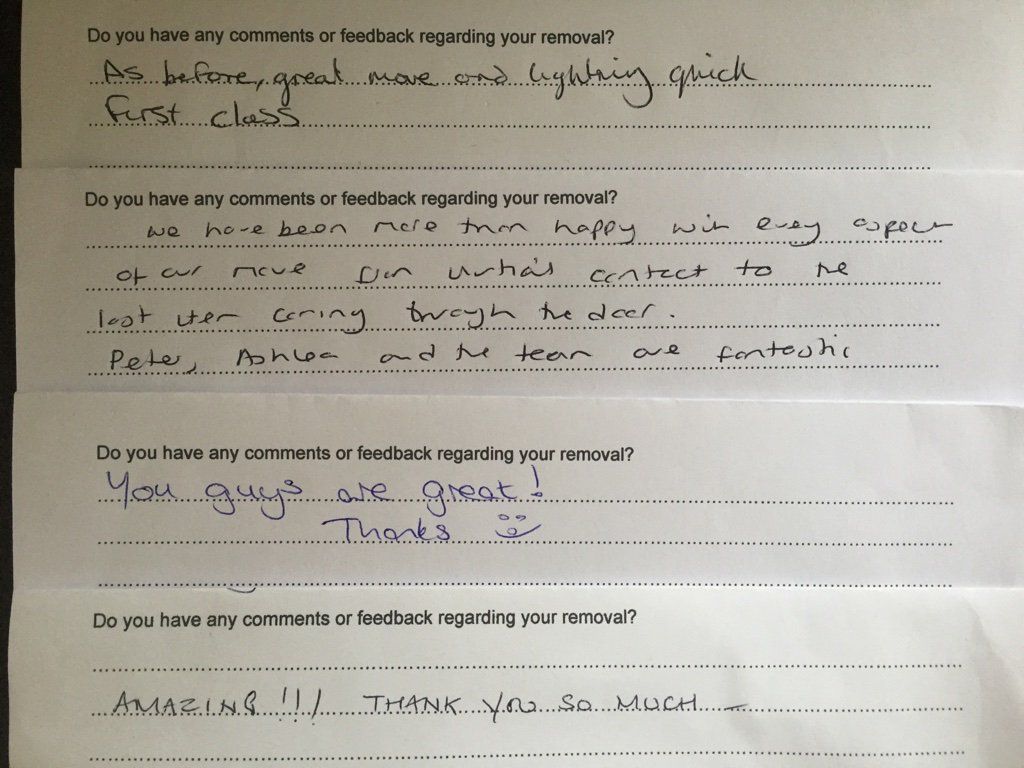 Do you have any comments or feedback regarding your removal?
As before, great move and lightning quick
First class
Do you have any comments or feedback regarding your removal?
we have been more than happy with every aspect
of our move from initial contact to the
last item coming through the door.
Peter, Ashlea and the team are fantastic
Do you have any comments or feedback regarding your removal?
You guys are great!
Thanks
Do you have any comments or feedback regarding your removal?
AMAZING!!! THANK YOU SO MUCH –